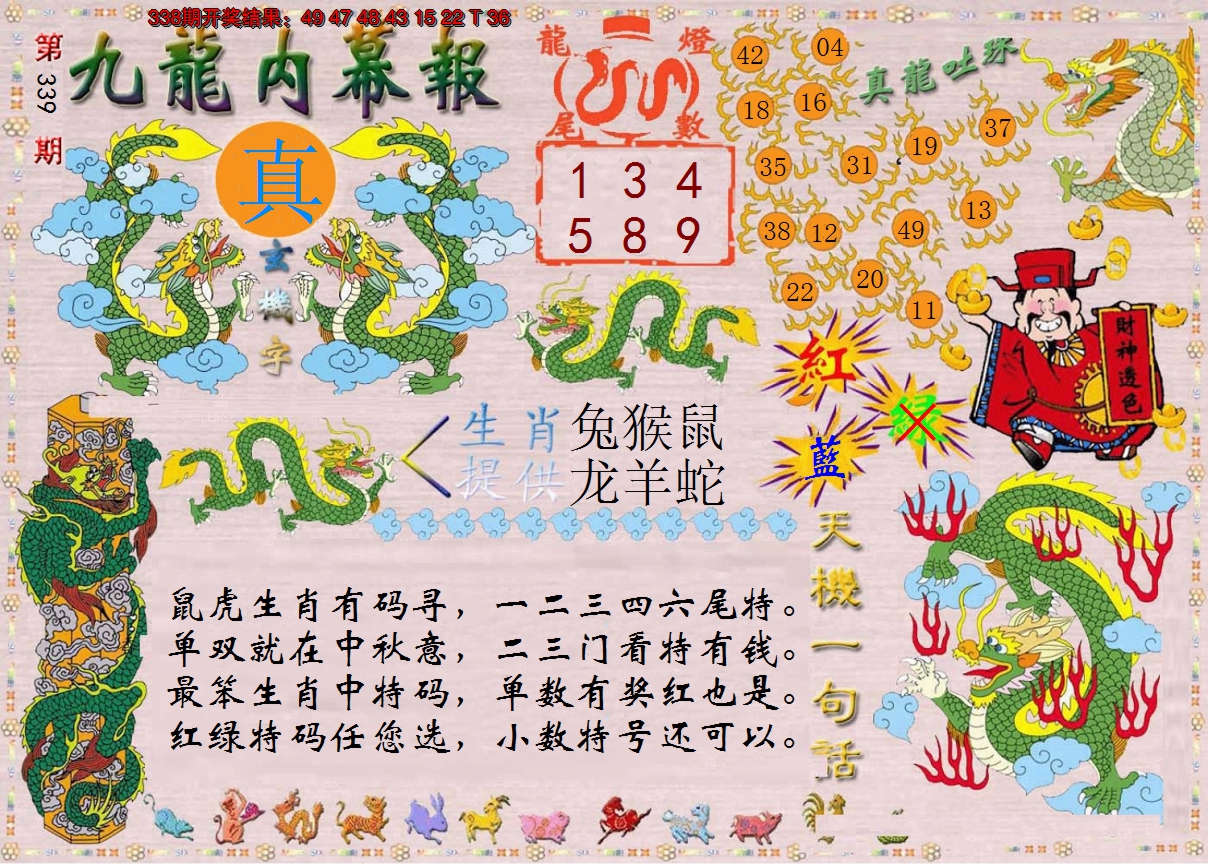 338期开奖结果：49 47 48 43 15 22 T 36
第339期
九龍内幕報
真
玄機字
龍燈尾數
1 3 4
5 8 9
真龍吐珠
42 04
18 16
35 31 19 37
38 12 49 13
22 20 11
紅
绿
藍
財神透色
生肖提供
兔猴鼠
龙羊蛇
天機一句話
鼠虎生肖有码寻，一二三四六尾特。
单双就在中秋意，二三门看特有钱。
最笨生肖中特码，单数有奖红也是。
红绿特码任您选，小数特号还可以。